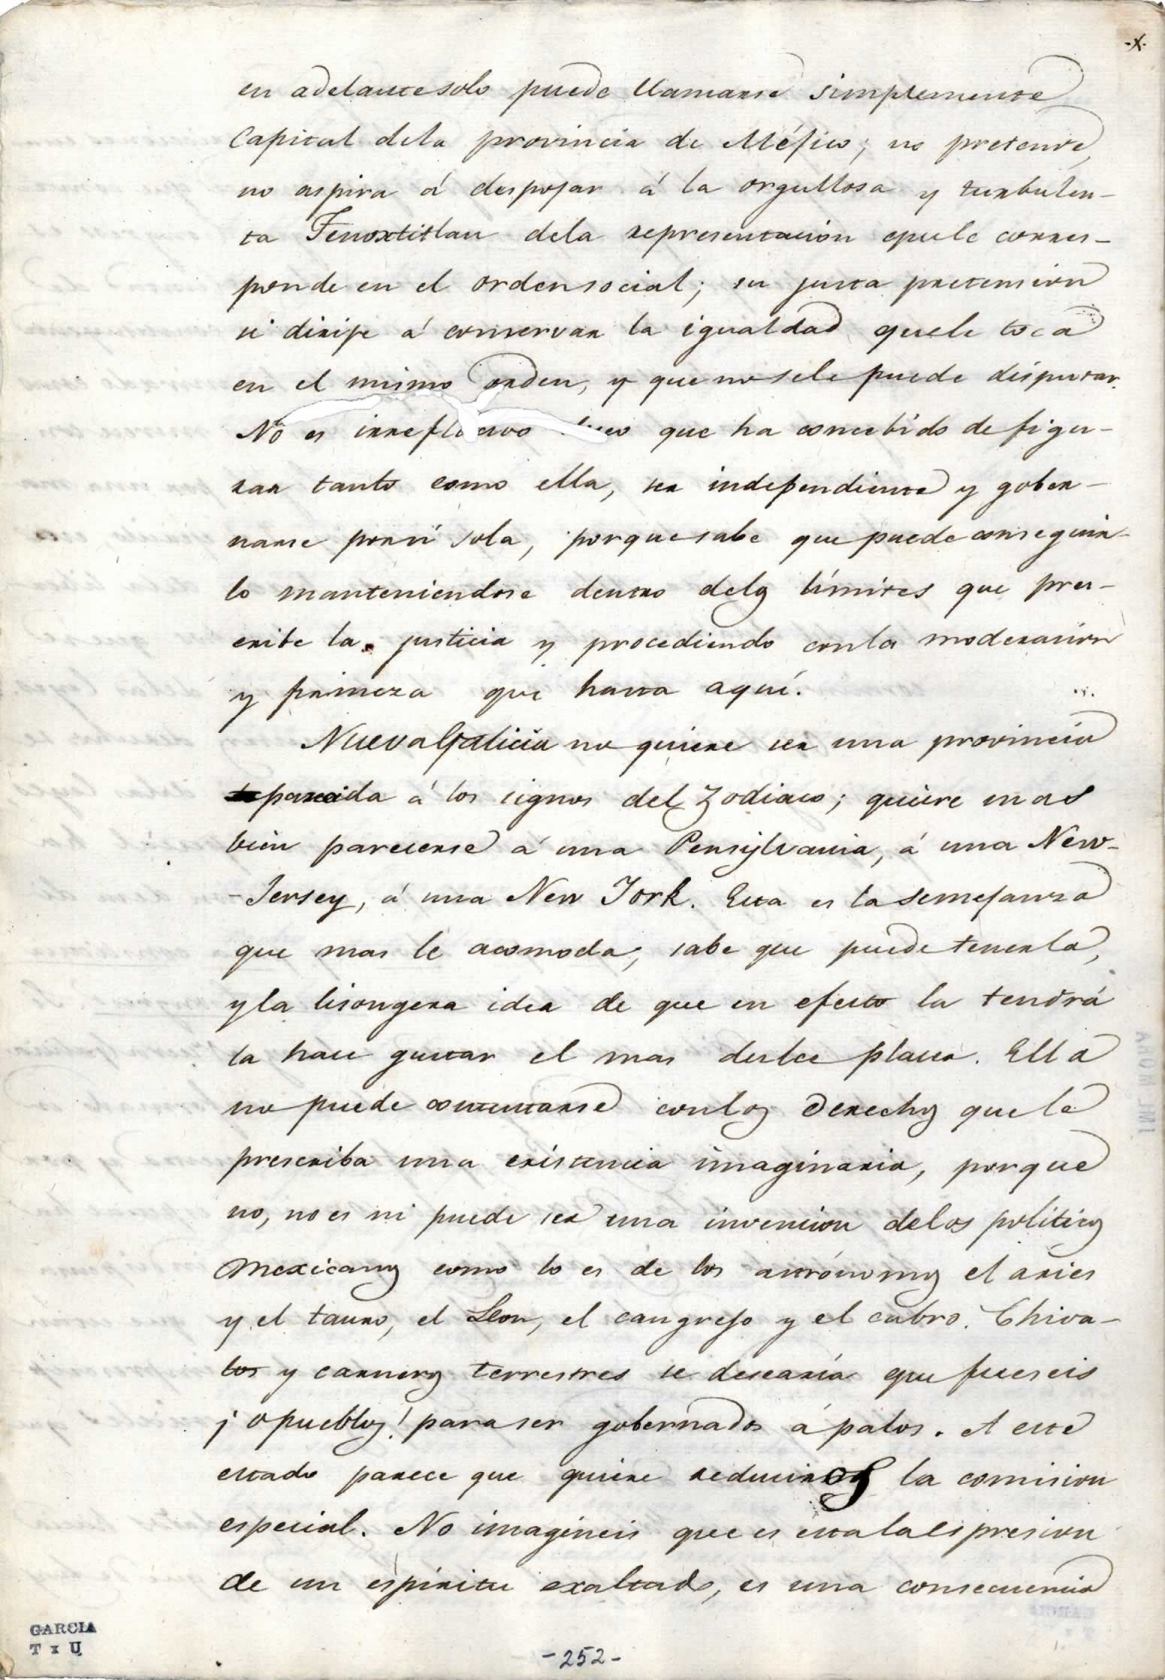 -x-
en adelante solo puede llamarse simplemente
Capital dela provincia de Méjico; no pretende,
no aspira á despojar á la orgullosa y turbulen-
ta Tenoxtitlan dela representacion quele corres-
ponde en el orden social; su justa pretension
se dirije á conservar la igualdad quele toca
en el mismo orden, y que no sele puede disputar.
No es irreflecsivo que ha concebido de figu-
rar tanto como ella, ser independiente y gober-
narse porsí sola, porque sabe que puede conseguir-
lo manteniendose dentro delos límites que pres-
cribe la justicia y procediendo conla moderacion
y firmeza que hasta aquí.
Nueva Galicia no quiere ser una provincia
parecida á los signos del Zodiaco; quiere mas
bien parecerse á una Pensylvania, á una New-
-Jersey, á una New York. Esta es la semejanza
que mas le acomoda, sabe que puede tenerla,
y la lisongera idea de que en efecto la tendrá
la hace gustar el mas dulce placer. Ella
no puede contentarse conlos derechos que le
prescriba una existencia imaginaria, porque
no, no es ni puede ser una invencion delos politicos
Mexicanos como lo es de los astrónomos el aries
y el tauro, el Leon, el cangrejo y el cabro. Chiva-
tos y carneros terrestres se desearía que fueseis
¡o pueblos! para ser gobernados á palos. A este
estado parece que quiere reduciros la comision
especial. No imagineis que es esta la espresion
de un espiritu exaltado, es una consecuencia
GARCIA
T x U
-252-